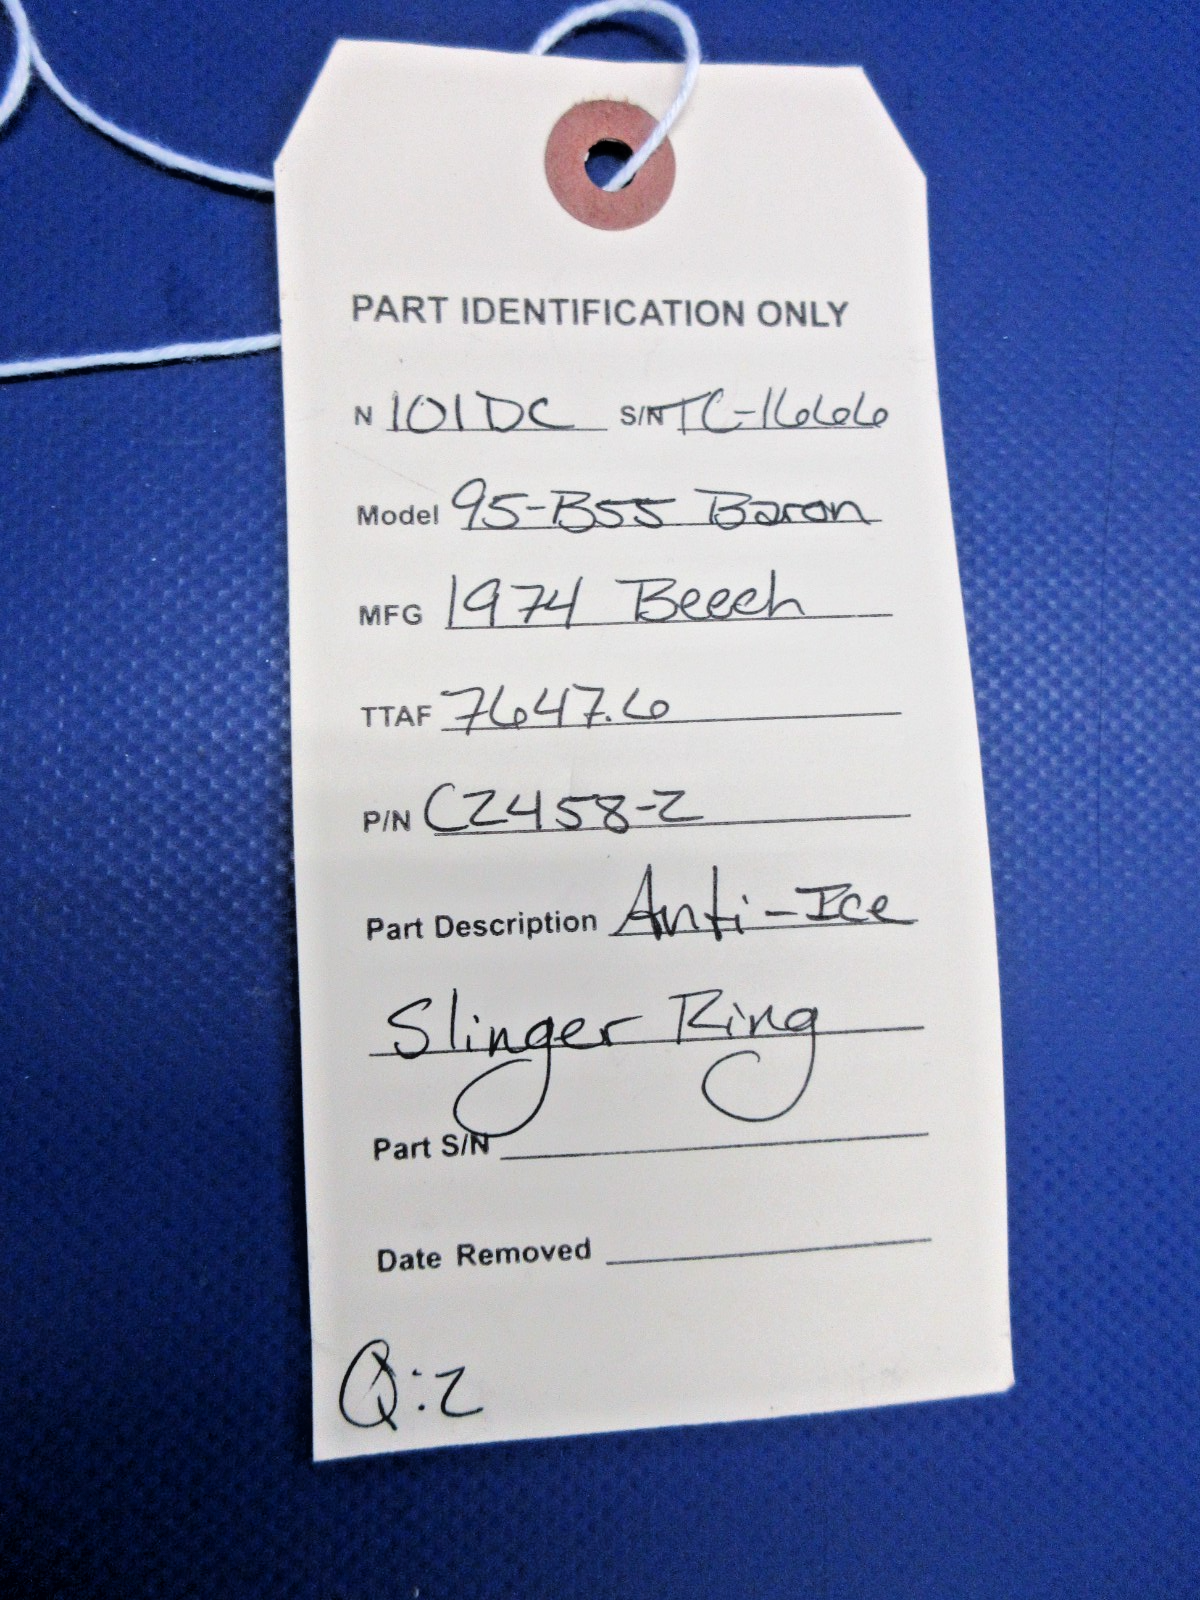 PART IDENTIFICATION ONLY
N 101DC S/N TC-1666
Model 95-B55 Baron
MFG 1974 Beech
TTAF 7647.6
P/N C2458-2
Part Description Anti-Ice
Slinger Ring
Part S/N
Date Removed
Q:2